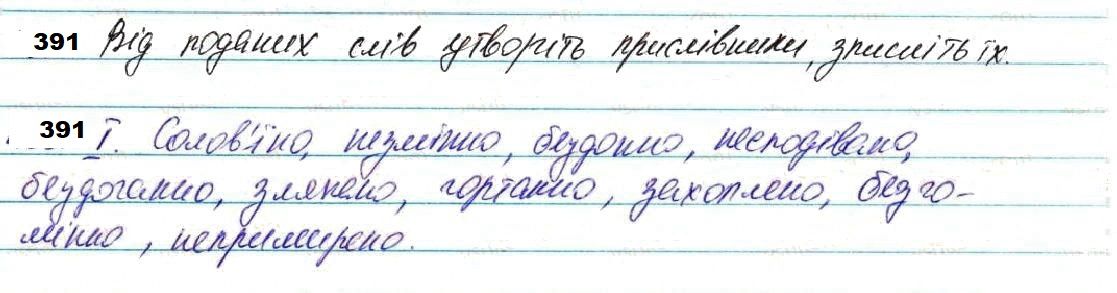 391 Від поданих слів утворіть прислівники, їх.
391 І. Солов'їно, незмінно, бездонно, несподівано,
бездоганно, злякано, гортанно, захоплено, безго-
мінно, непримирено.